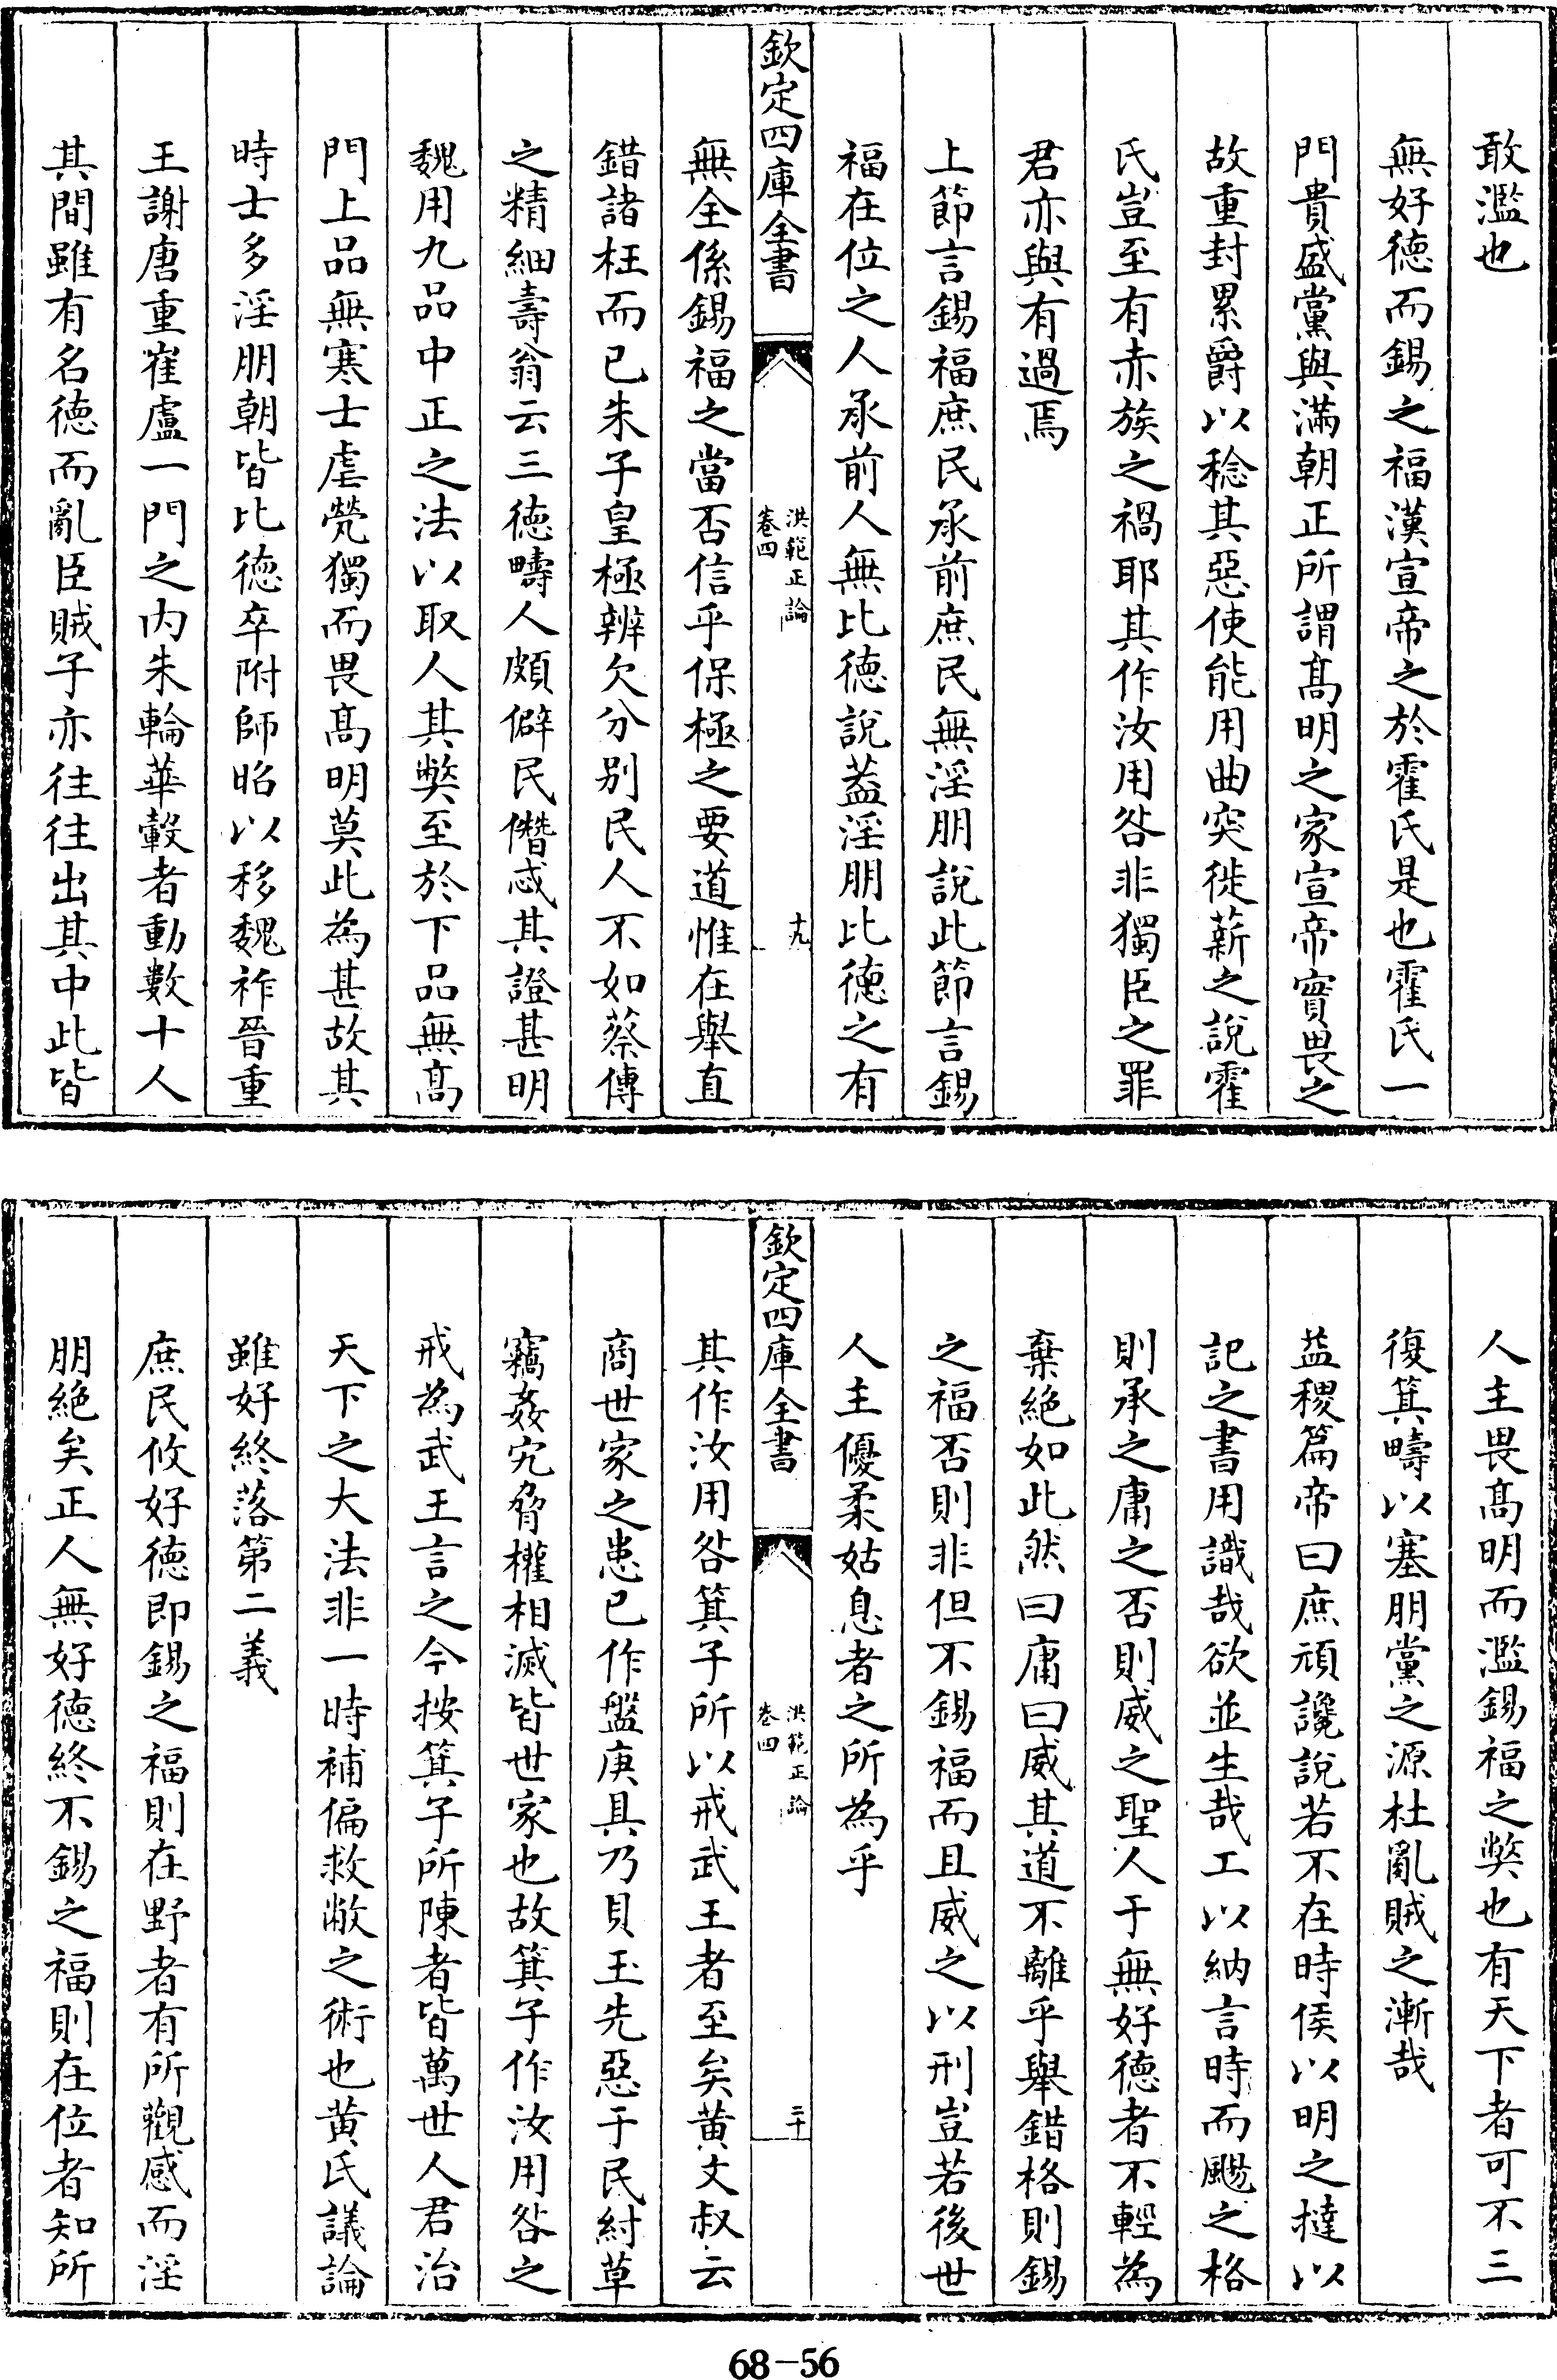 敢濫也
無好德而錫之福漢宣帝之於霍氏是也霍氏一
門貴盛黨與滿朝正所謂髙明之家宣帝實畏之
故重封累爵以稔其惡使能用曲突徙薪之說霍
氏豈至有赤族之禍耶其作汝用咎非獨臣之罪
君亦與有過焉
上節言錫福庶民承前庶民無淫朋說此節言錫
福在位之人承前人無比德說葢淫朋比德之有
欽定四庫全書
洪範正論
卷四
十九
無全係錫福之當否信乎保極之要道惟在舉直
錯諸枉而已朱子皇極辨欠分别民人不如蔡傳
之精細壽翁云三德疇人頗僻民僭忒其證甚明
魏用九品中正之法以取人其弊至於下品無髙
門上品無寒士虐煢獨而畏髙明莫此為甚故其
時士多淫朋朝皆比德卒附師昭以移魏祚晉重
王謝唐重崔盧一門之内朱輪華轂者動數十人
其間雖有名德而亂臣賊子亦往往出其中此皆
人主畏髙明而濫錫福之弊也有天下者可不三
復箕疇以塞朋黨之源杜亂賊之漸哉
益稷篇帝曰庶頑讒說若不在時侯以明之撻以
記之書用識哉欲並生哉工以納言時而颺之格
則承之庸之否則威之聖人于無好德者不輕為
棄絶如此然曰庸曰威其道不離乎舉錯格則錫
之福否則非但不錫福而且威之以刑豈若後世
人主優柔姑息者之所為乎
欽定四庫全書
洪範正論
卷四
二十
其作汝用咎箕子所以戒武王者至矣黄文叔云
商世家之患已作盤庚具乃貝玉先惡于民紂草
竊姦宄脅權相滅皆世家也故箕子作汝用咎之
戒為武王言之今按箕子所陳者皆萬世人君治
天下之大法非一時補偏救敝之術也黄氏議論
雖好終落第二義
庶民攸好德即錫之福則在野者有所觀感而淫
朋絶矣正人無好德終不錫之福則在位者知所
68-56